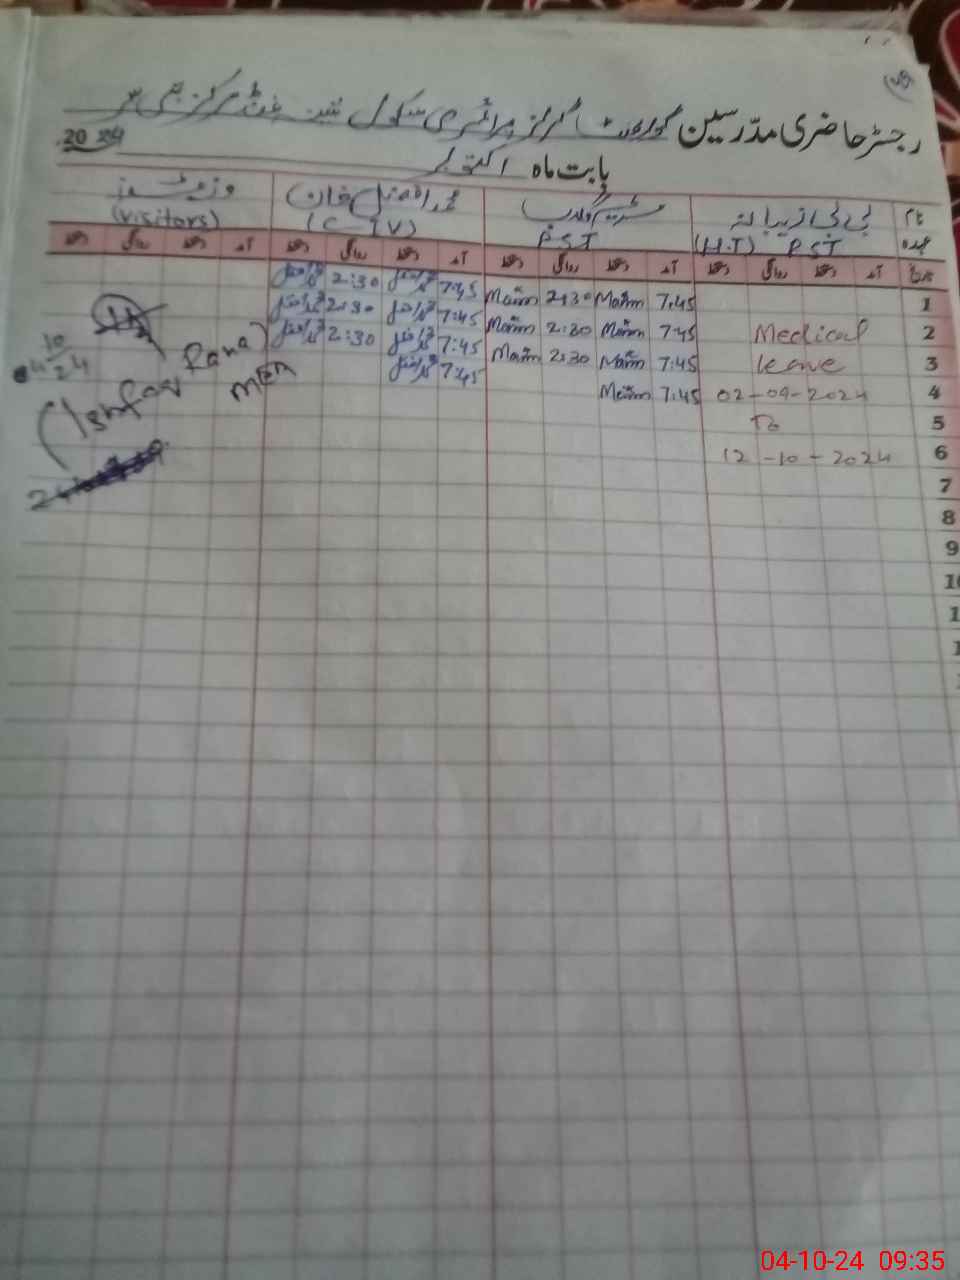 رجسٹر حاضری مدرسین گورنمنٹ گرلز پرائمری سکول
2024
بابت ماہ اکتوبر
نام بی بی زیبا محمد افضل خان وزیٹرز
عہدہ (H.T) PST PST (C-IV) (Visitors)
تاریخ آمد دستخط روانگی دستخط آمد دستخط روانگی دستخط آمد دستخط روانگی دستخط آمد دستخط روانگی دستخط
1 7:45 Maām 2:30 Maām 7:45 محمد افضل 2:30 محمد افضل
2 Medical 7:45 Maām 2:30 Maām 7:45 محمد افضل 2:30 محمد افضل
3 leave 7:45 Maām 2:30 Maām 7:45 محمد افضل 2:30 محمد افضل
4 02-09-2024 7:45 Maām 7:45 محمد افضل
5 To
6 12-10-2024
7
8
9
10
4/10/24
(Ishfaq Rana)
MEA
04-10-24 09:35